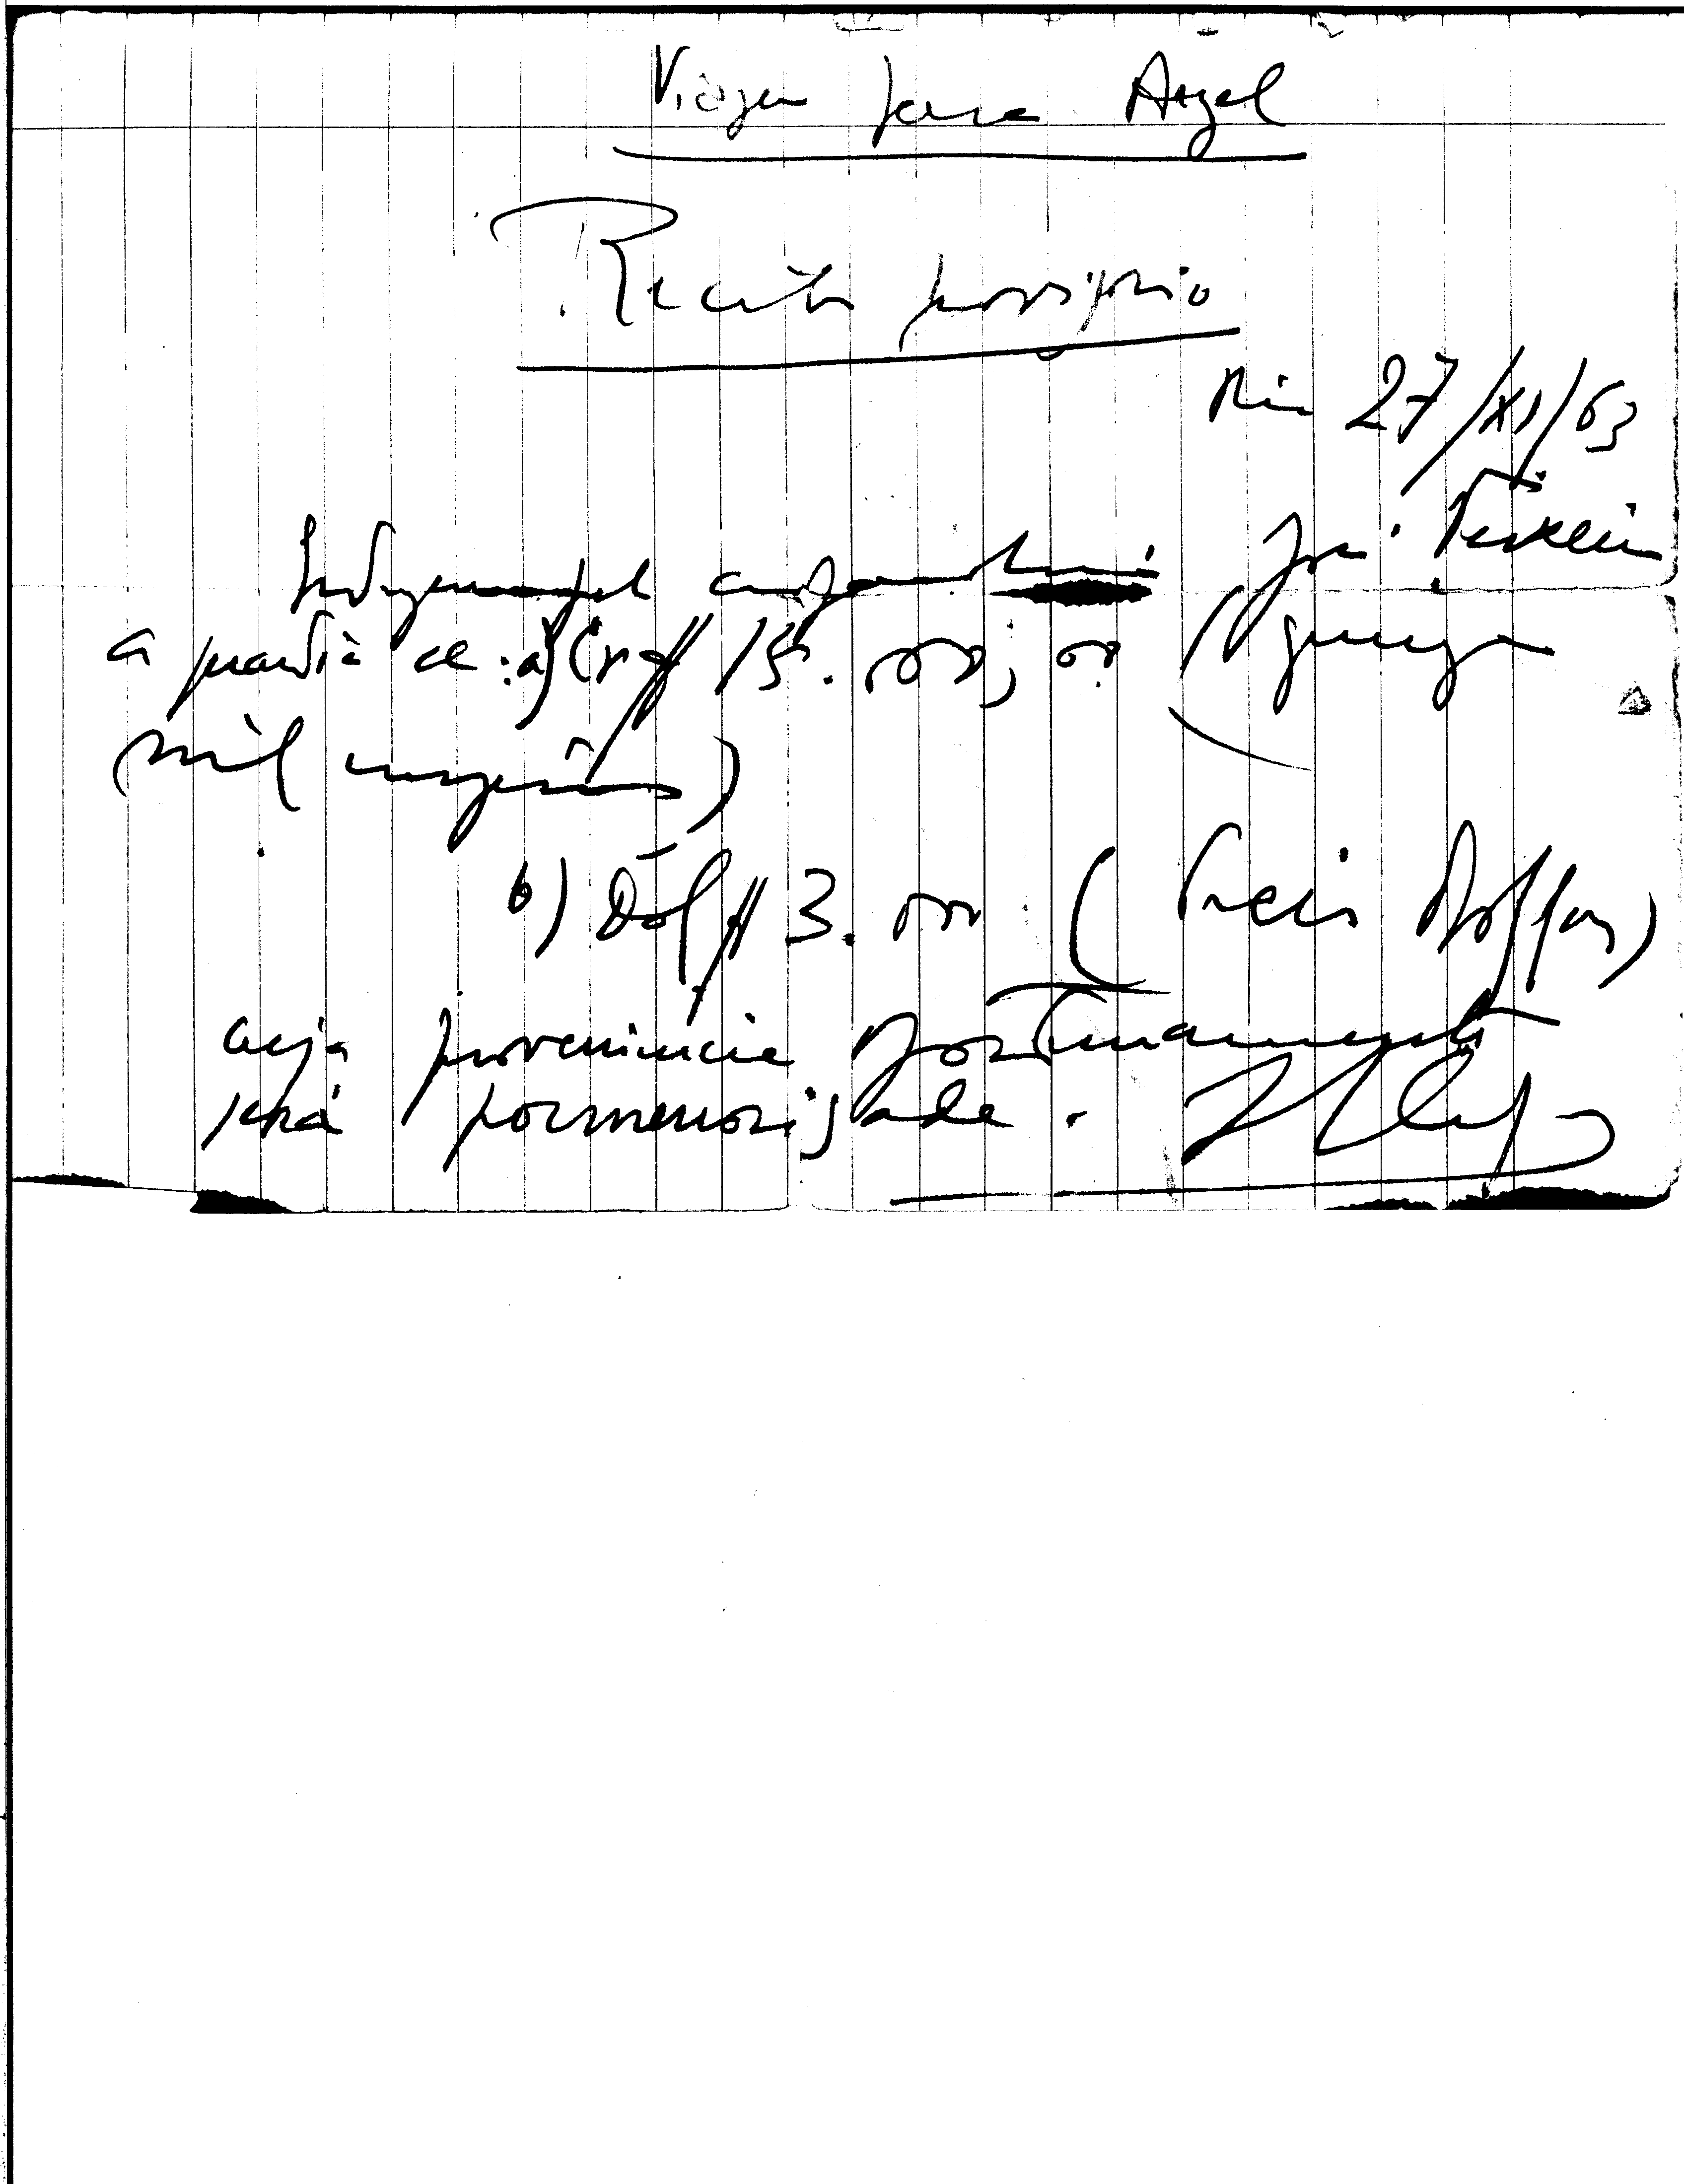 Viagem para Argel
Recibo provisório
Rio 27/XI/63
José Teixeira
a quantia de: a) Cr$ 15.000,00 (quinze
mil cruzeiros)
b) Dol $ 3.000 (três dollars)
cuja proveniencia posteriormente
será pormenorizada.